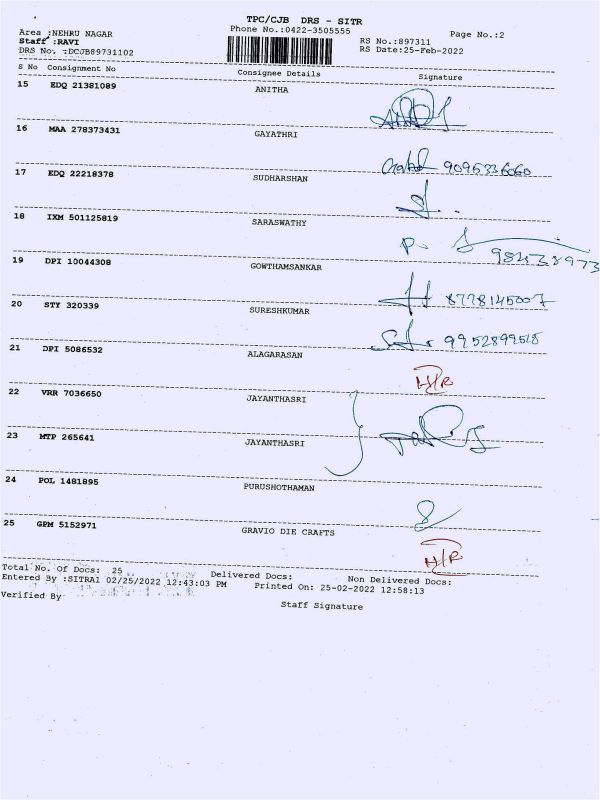 TPC/CJB DRS - SITR
Phone No.:0422-3505555
Page No.:2
Area :NEHRU NAGAR
RS No.:897311
Staff :RAVI
RS Date:25-Feb-2022
DRS No. :DCJB89731102
S No Consignment No Consignee Details Signature
15 EDQ 21381089 ANITHA
16 MAA 278373431 GAYATHRI
9095336060
17 EDQ 22218378 SUDHARSHAN
18 IXM 501125819 SARASWATHY
P.
19 DPI 10044308 GOWTHAMSANKAR
8778145007
20 STY 320339 SURESHKUMAR
21 DPI 5086532 ALAGARASAN
H/R
22 VRR 7036650 JAYANTHASRI
23 MTP 265641 JAYANTHASRI
24 POL 1481895 PURUSHOTHAMAN
25 GPM 5152971 GRAVIO DIE CRAFTS
H/R
Total No. Of Docs: 25 Delivered Docs: Non Delivered Docs:
Entered By :SITRA1 02/25/2022 12:43:03 PM Printed On: 25-02-2022 12:58:13
Verified By
Staff Signature